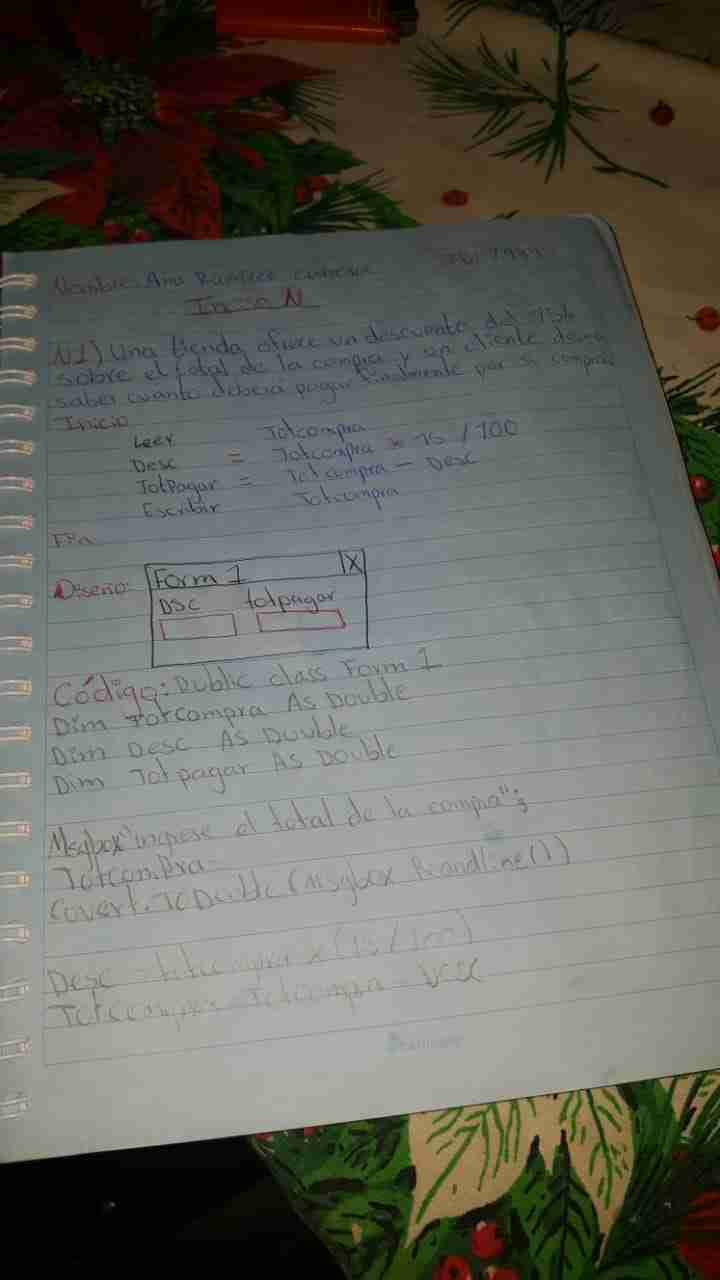 Nombre: Ana Ramírez
N1) Una tienda ofrece un descuento del 15%
sobre el total de la compra y un cliente desea
saber cuanto deberá pagar finalmente por su compra
Inicio
Leer Totcompra
Desc = Totcompra * 15 / 100
TotPagar = Totcompra - Desc
Escribir Totcompra
Fin
Diseño:
Form 1 X
DSC totpagar
Código: Public class Form 1
Dim Totcompra As Double
Dim Desc As Double
Dim Totpagar As Double
Msgbox "ingese el total de la compra";
Totcompra
Covert.To Double (Msgbox Readline())
Desc = totcompra x (15/100)
Totcompra Totcompra -